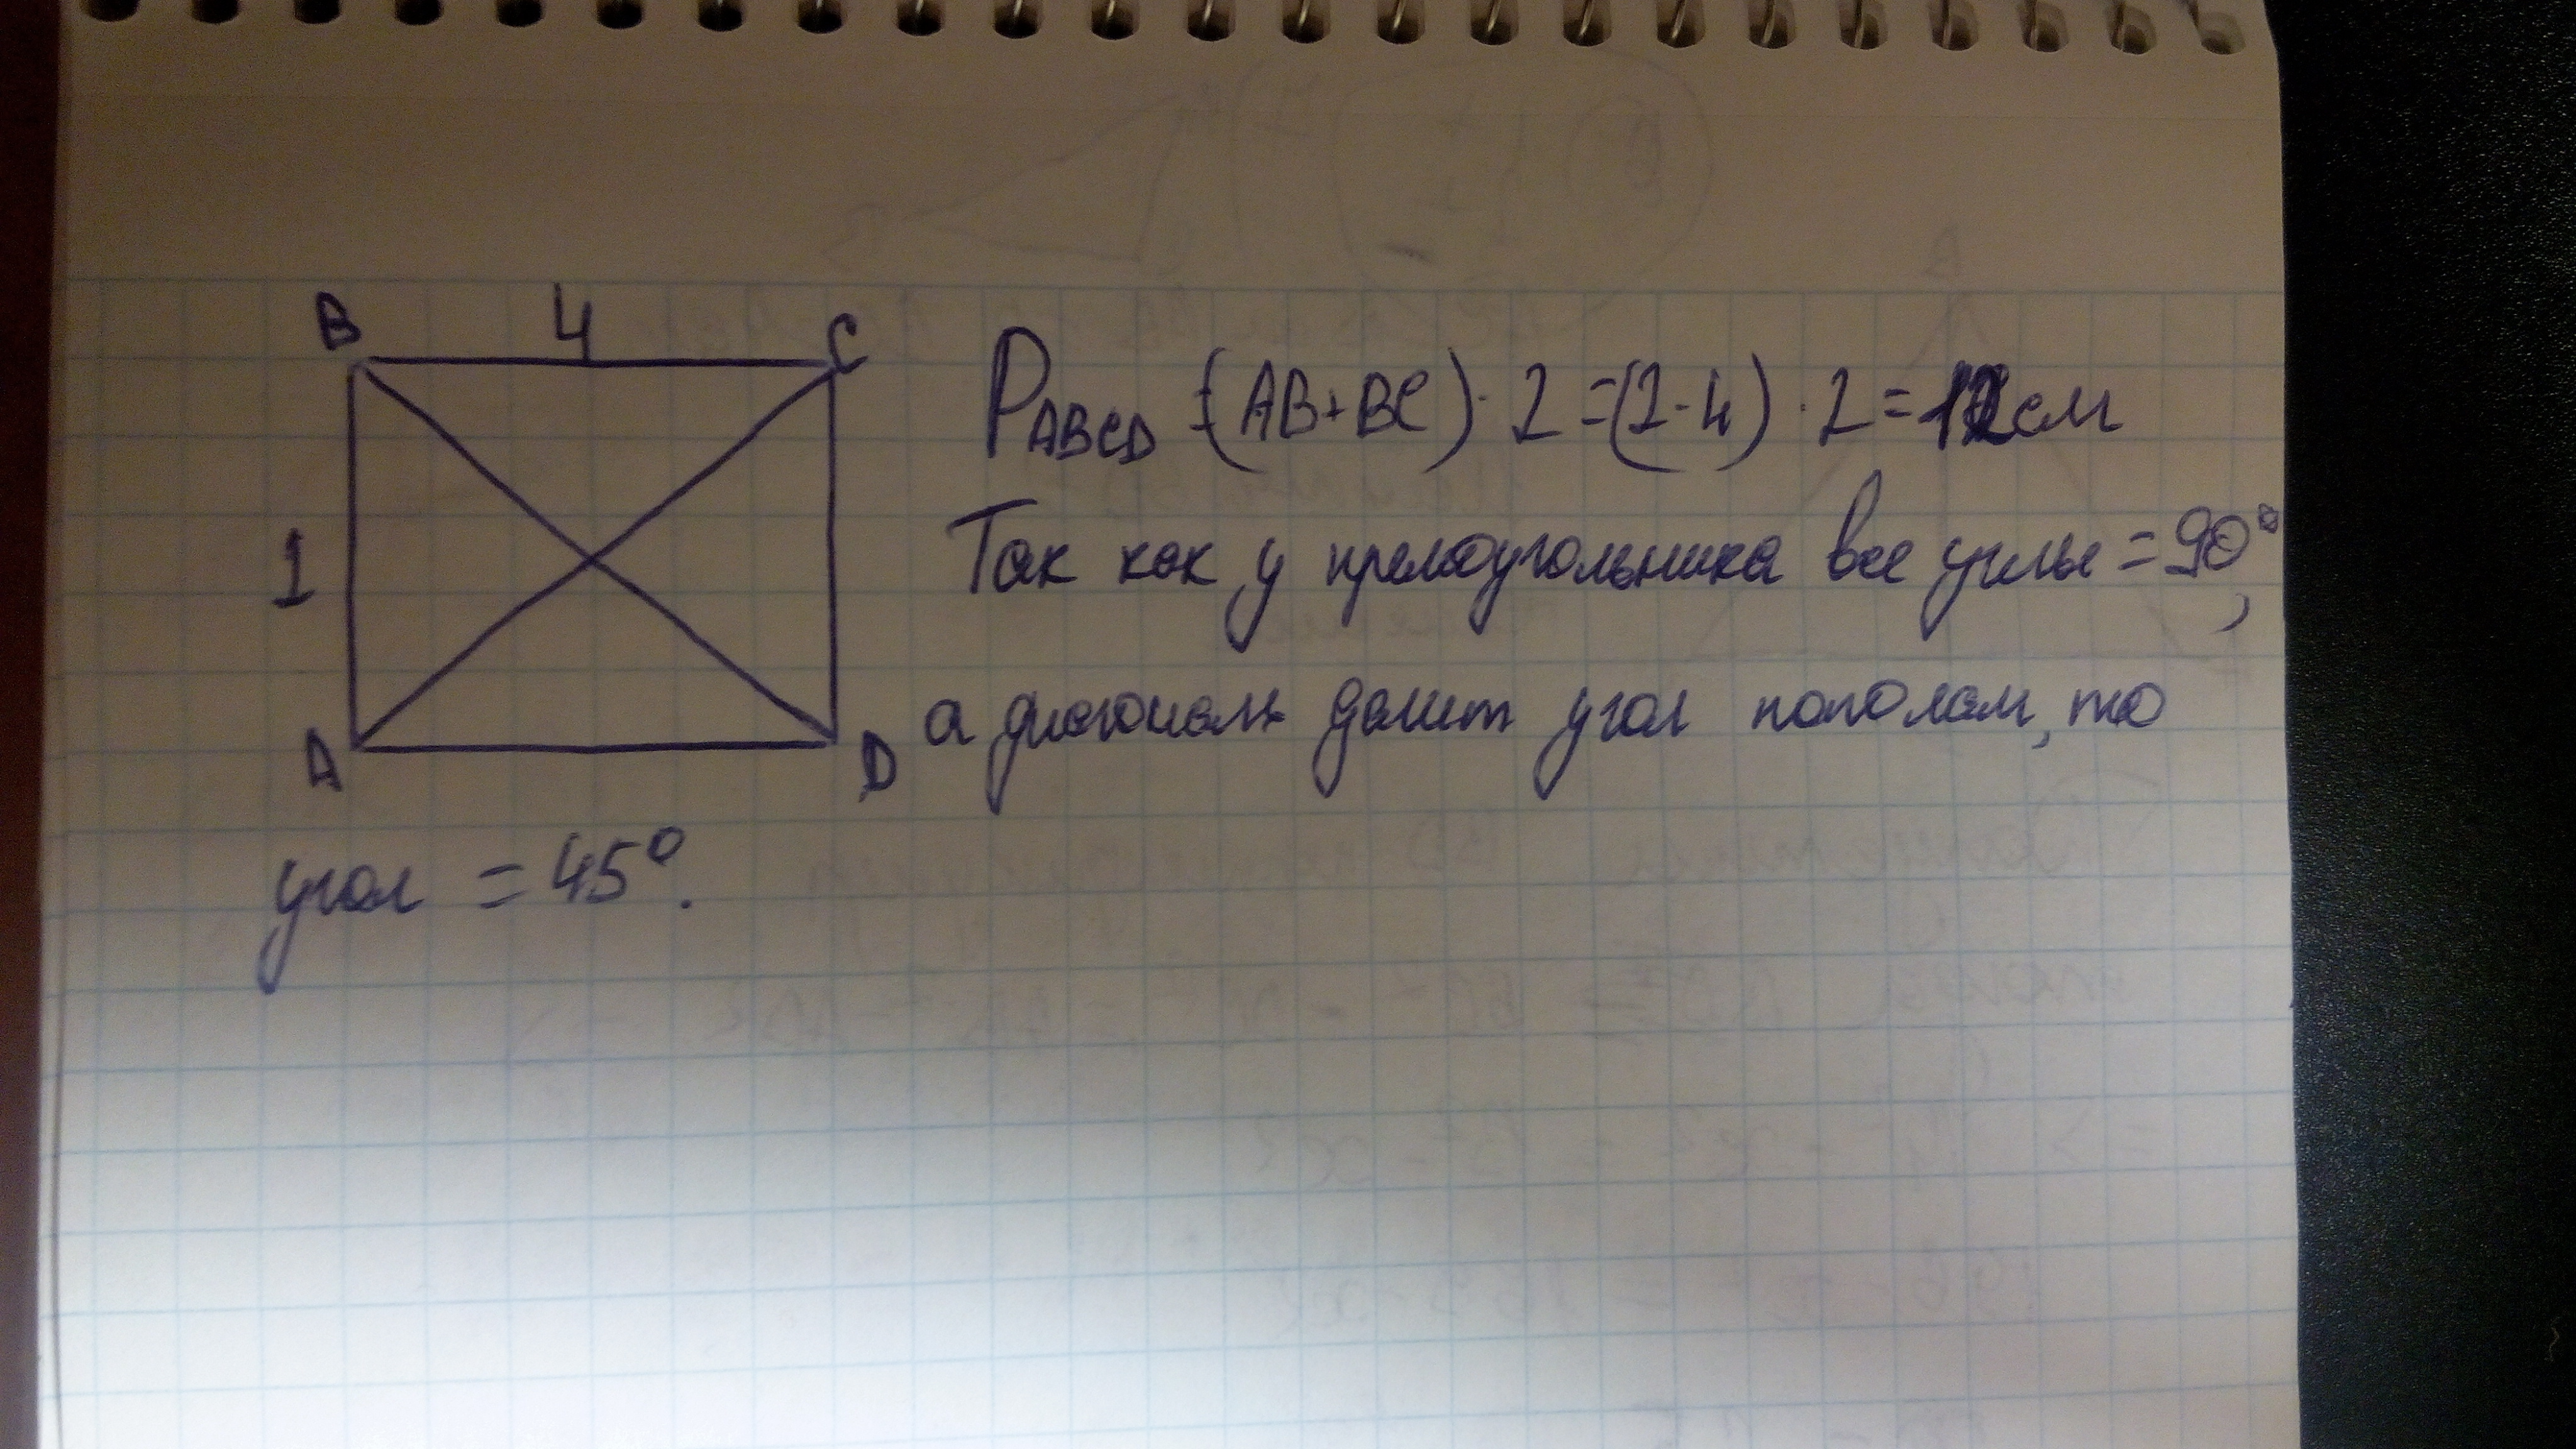 B 4 C
P ABCD = (AB+BC) · 2 = (2·4) · 2 = 12см
Так как у прямоугольника все углы = 90°,
1
а диагональ делит угол пополам, то
A D
угол = 45°.